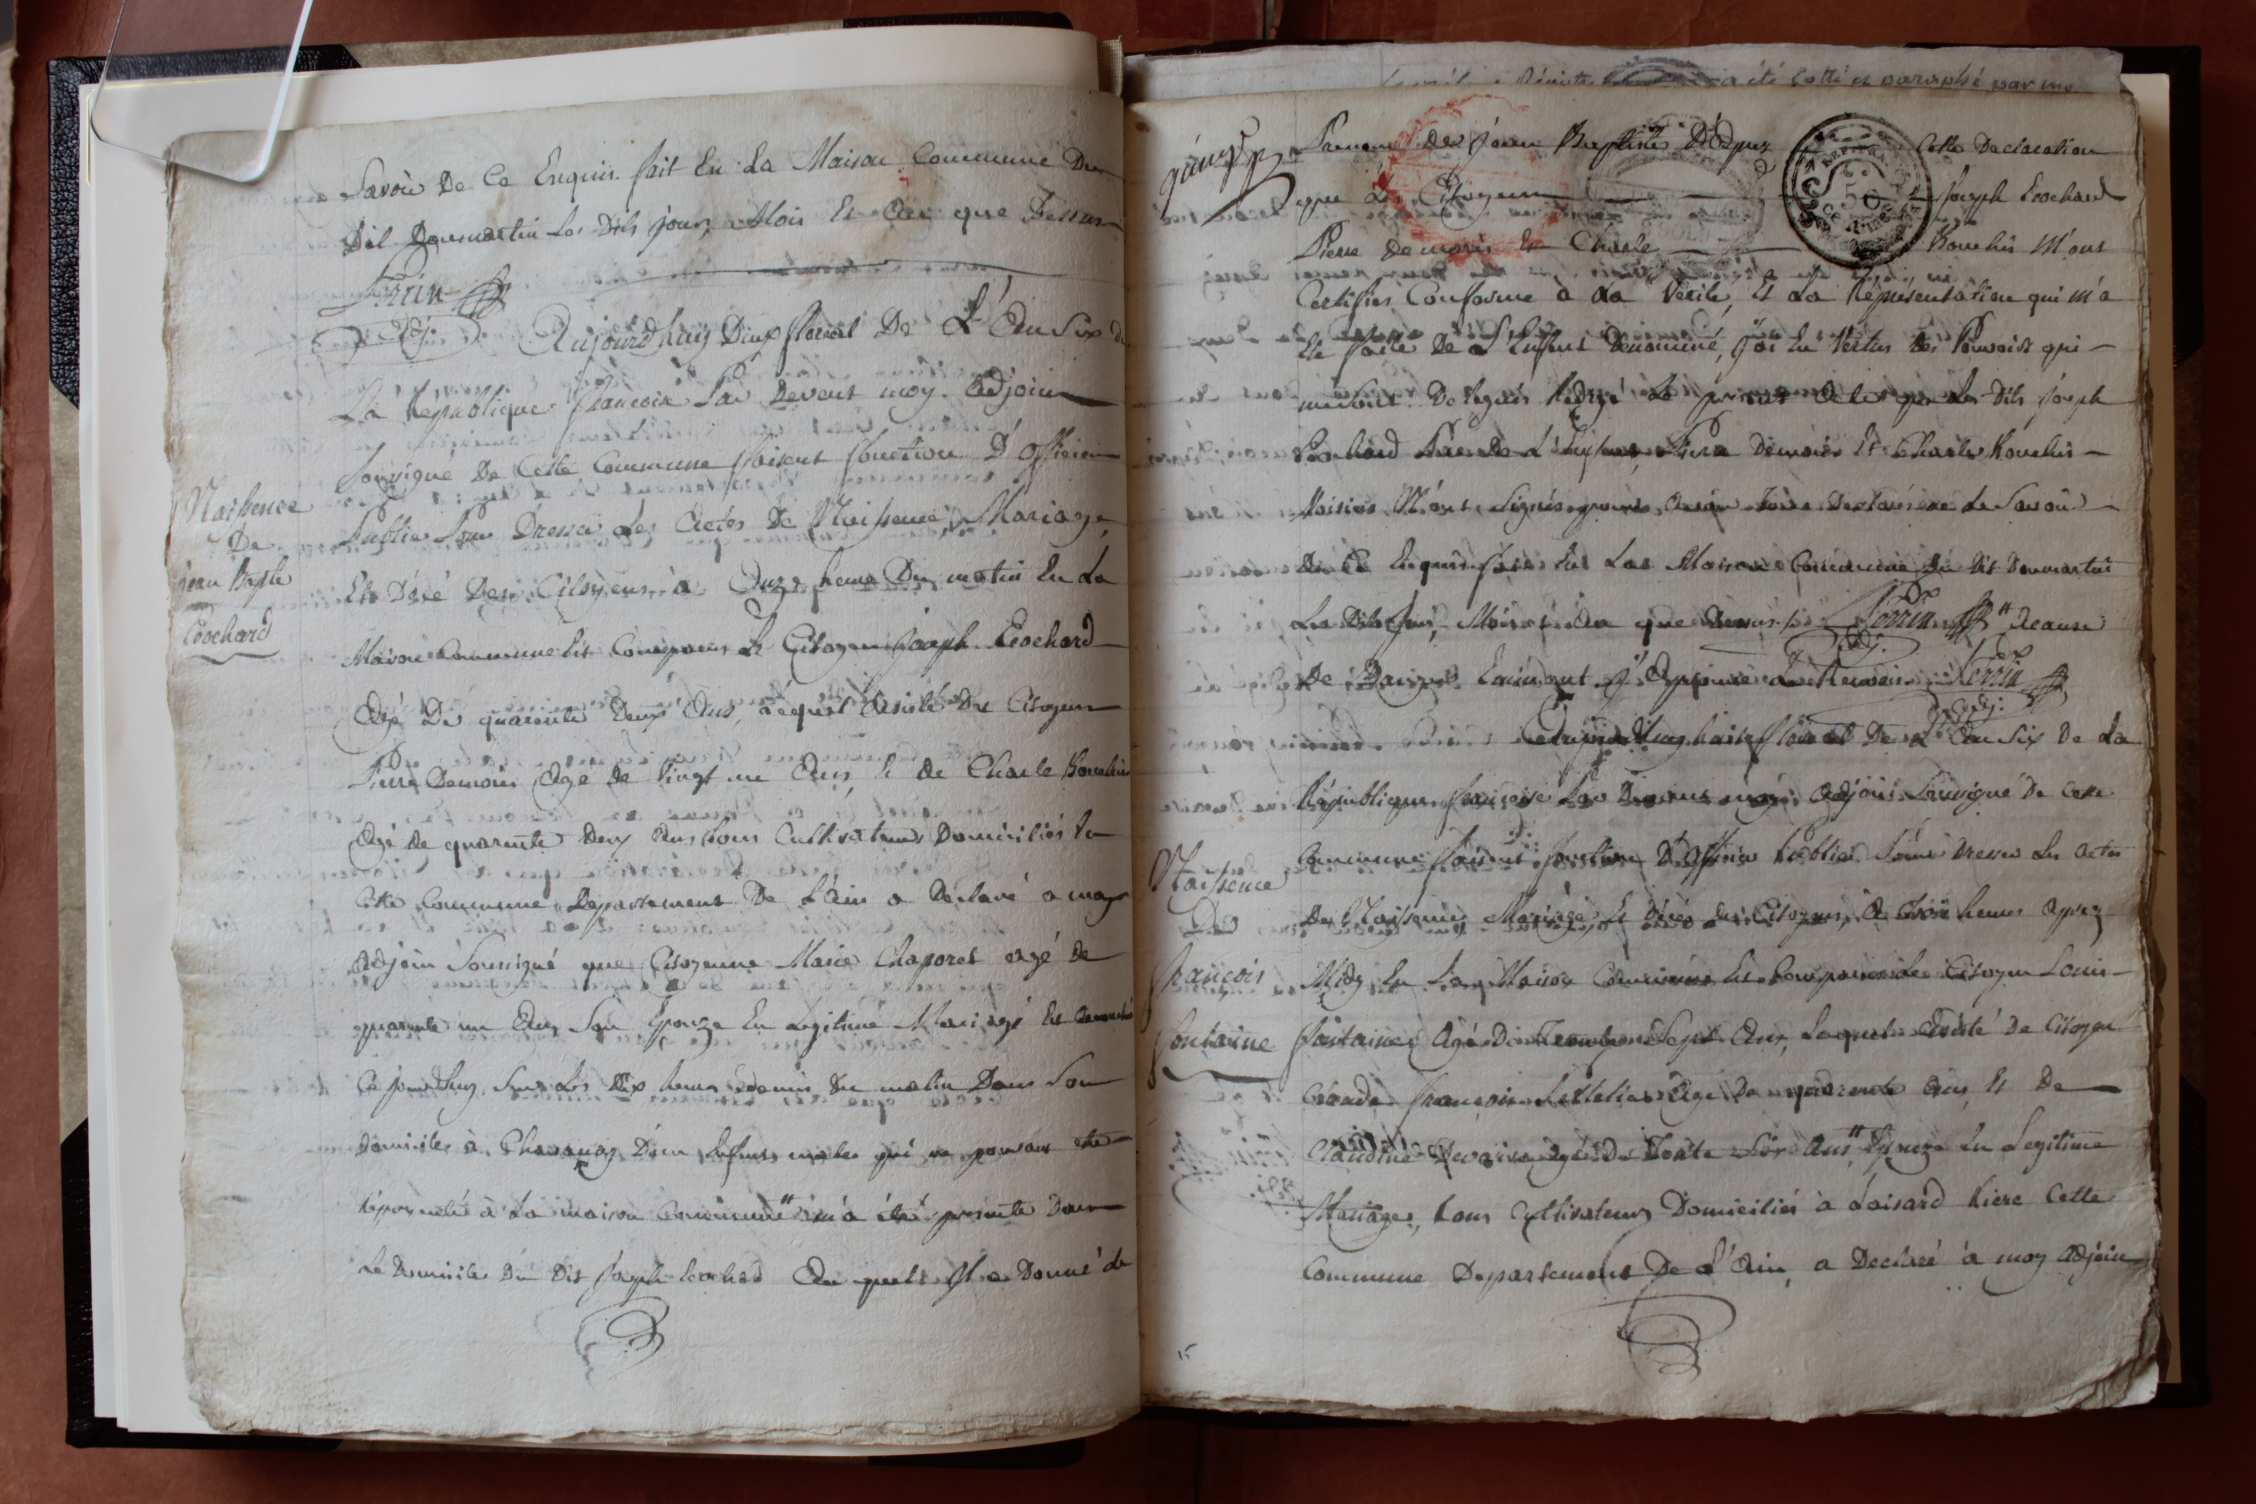 Savoir De Ce Enquis fait En La Maison Commune Du
Dit Dommartin Les Dits jour, Mois Et An que Dessus
Perrin
Adj.
Aujourdhuy Deux floreal De L'An Six de
La Republique francoise Par Devent moy Adjoin
Sousigné De Cette Commune faisent fonction D'officier
Public Pour Dresser Les Actes De Naissence, Mariage,
Et Décé Des Citoyens, à Onze heure Du matin En La
Maison Commune Est Comparus Le Citoyen Joseph Cochard
Agé De quarente Deux Ans, Lequel Assisté Du Citoyen
Pierre Demoirs Agé de Vingt un Ans, Et de Charle
Agé de quarente Deux Ans tous Cultivateurs Domiciliés En
Cette Commune Departement De L'Ain a Declaré a moy
Adjoin Sousigné que Citoyenne Marie Chaporet agé de
quarente un Ans Son Epouze En Legitime Mariage Est Accouché
Ce jourdhuy Sur Les Dix heures demis Du matin Dans Son
Domicile à Chavanoz D'un Enfent male qui ne pouvant etre
à La maison Commune m'a été presenté Dans
Le Domicile Du Dit Joseph Cochard Au quels Il a Donné de
Naissence
De
jean Bapte
Cochard
Prenom De Jean Baptiste D'Apres Cette Declaration
que Les Citoyens Joseph Cochard
Pierre Demoirs Et Charle M'ont
Certifiés Conforme a La Verité, Et La Representation qui m'a
Eté faite De L'Enfent Denommé, J'ai En Vertus Des Pouvoirs qui
me Sont Delegués Redigé Le present Acte que Les Dits Joseph
Cochard Pere De L'Enfent, Pierre Demoirs Et Charle
Voisins N'ont Signés pour Avoir Declarés ne Le Savoir
De Ce Enquis fait En La Maison Commune Du Dit Dommartin
Les Dits jour, Mois et An que Dessus Perrin
Adj.
De J'Approuve Le Renvoi Perrin
Adj.
Aujourdhuy huit floreal De L'An Six De La
Republique francoise Par Devent moy Adjoin Sousigné De Cette
Commune faisent fonction D'officier Public Pour Dresser Les Actes
De Naissence, Mariage, Et Décés des Citoyens, à Trois heures Apres
Midy En La Maison Commune Est Comparus Le Citoyen Louis
fontaine Agé De Sept Ans, Lequel Assisté De Citoyen
Claude francois Agé De quarente Ans, Et De
Claudine Agé De Trente Six Ans, Epouze En Legitime
Mariage, tous Cultivateurs Domiciliés à Loisard Riere Cette
Commune Departement De L'Ain, a Declaré à moy Adjoin
Naissence
De
francois
fontaine